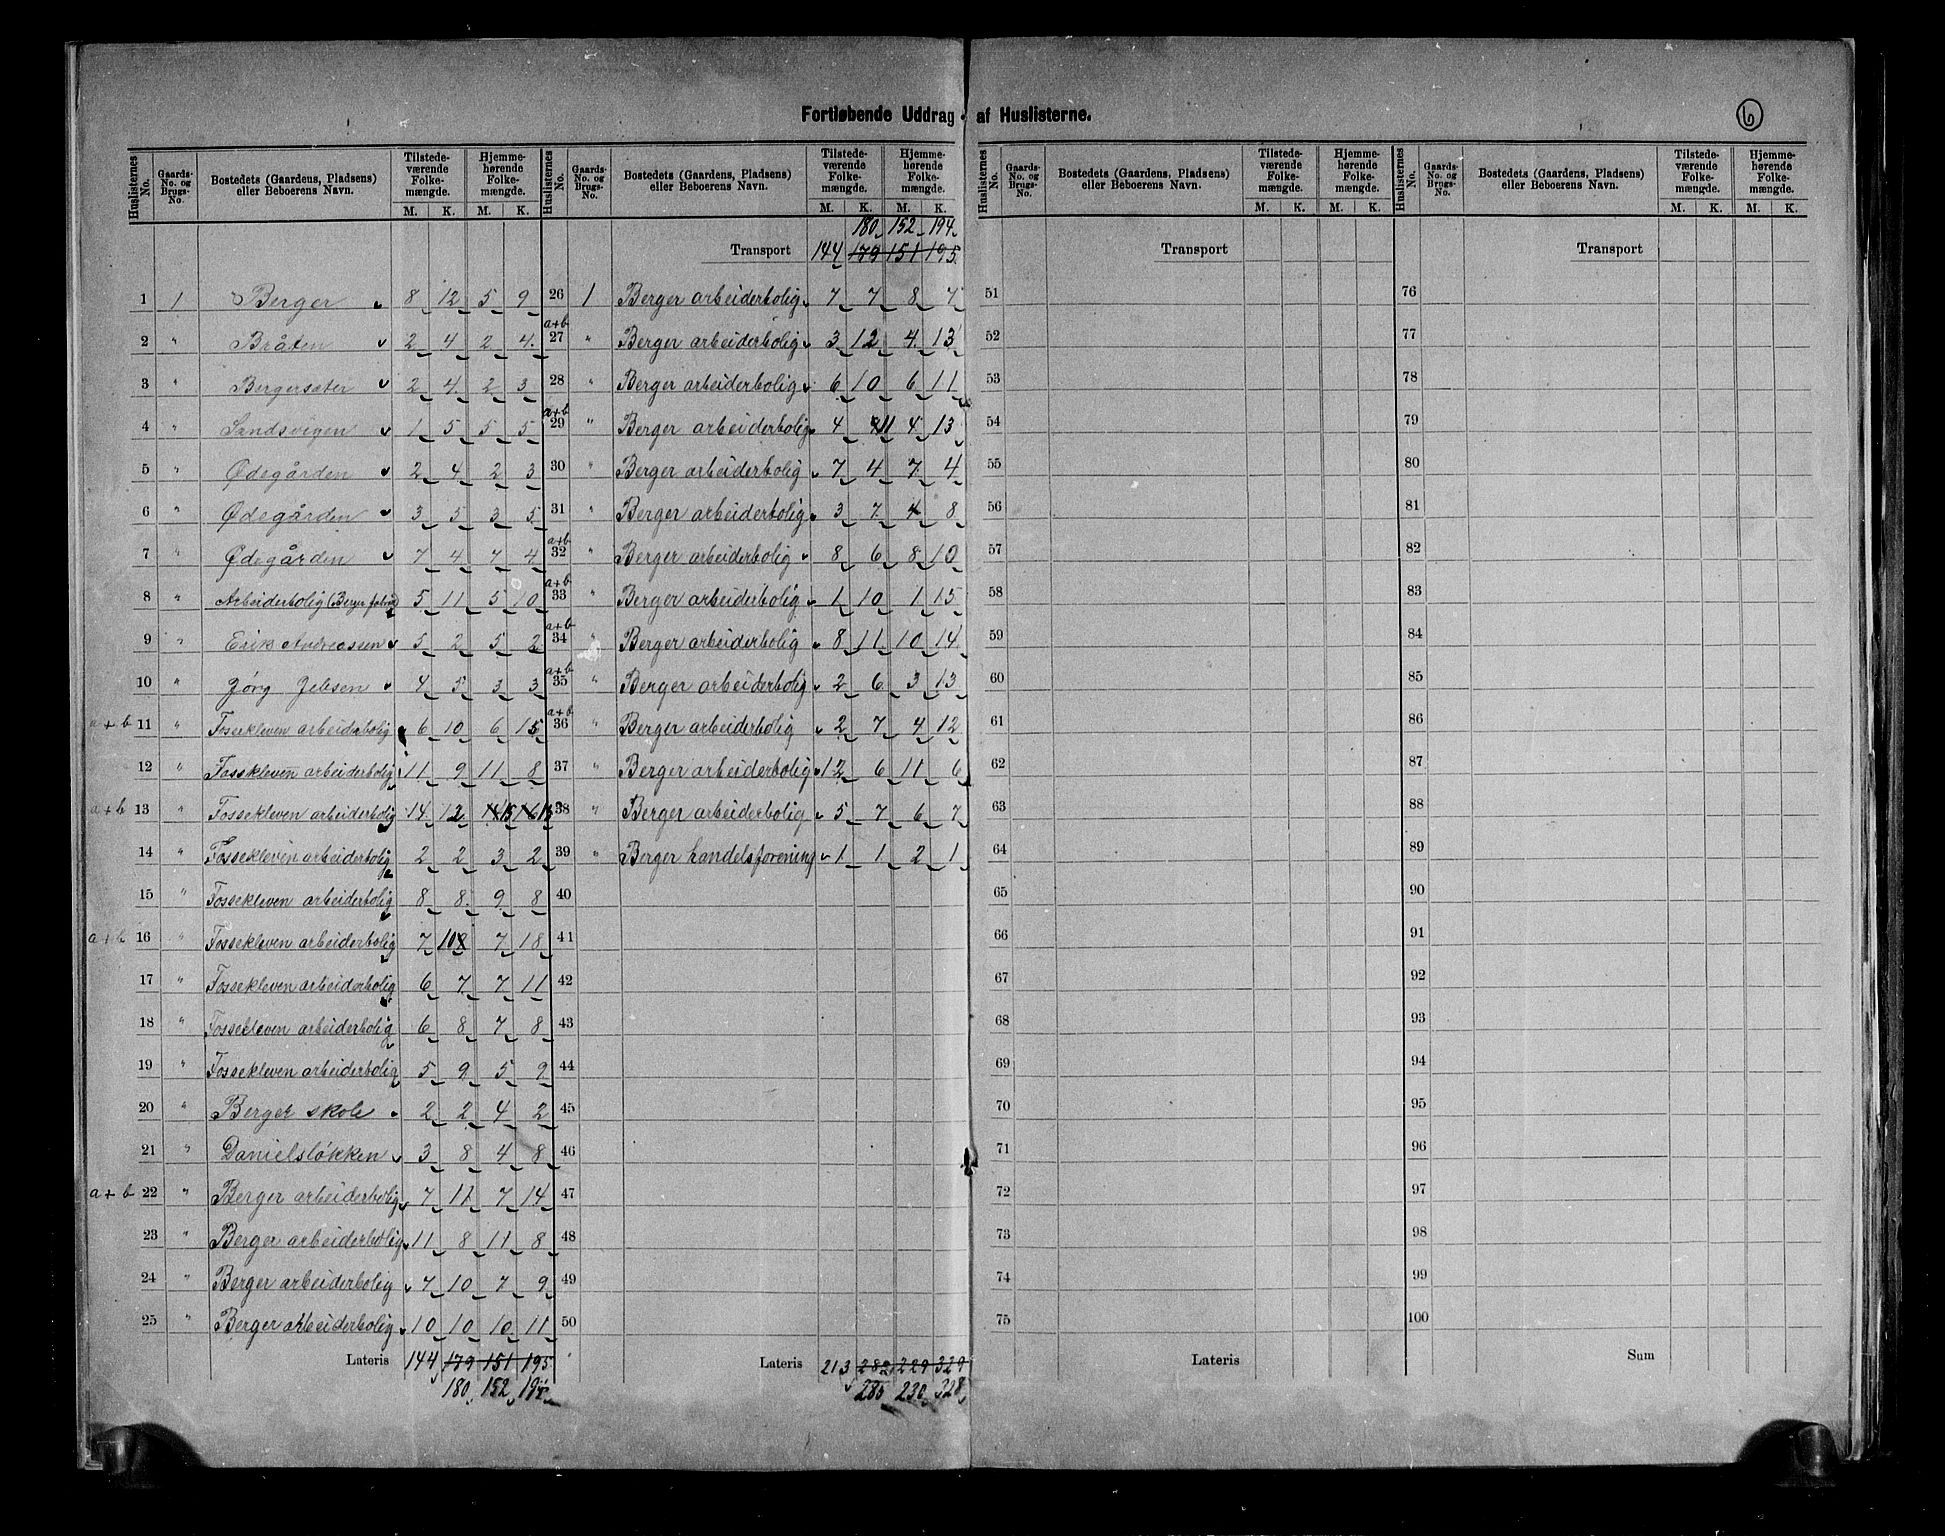 Fortløbende Uddrag af Huslisterne.
6
Huslisternes No. Gaards-No. og Brugs-No. Bostedets (Gaardens, Pladsens) eller Beboerens Navn. Tilstedeværende Folkemængde. M. K. Hjemmehørende Folkemængde. M. K.
Huslisternes No. Gaards-No. og Brugs-No. Bostedets (Gaardens, Pladsens) eller Beboerens Navn. Tilstedeværende Folkemængde. M. K. Hjemmehørende Folkemængde. M. K.
Huslisternes No. Gaards-No. og Brugs-No. Bostedets (Gaardens, Pladsens) eller Beboerens Navn. Tilstedeværende Folkemængde. M. K. Hjemmehørende Folkemængde. M. K.
Huslisternes No. Gaards-No. og Brugs-No. Bostedets (Gaardens, Pladsens) eller Beboerens Navn. Tilstedeværende Folkemængde. M. K. Hjemmehørende Folkemængde. M. K.
1 1 Berger 8 12 5 9
2 " Bråten 2 4 2 4
3 " Bergersæter 2 4 2 3
4 " Sandsvigen 1 5 5 5
5 " Ødegården 2 4 2 3
6 " Ødegården 3 5 3 5
7 " Ødegården 7 4 7 4
8 " Arbeiderbolig (Berger fabrik) 5 11 5 10
9 " Erik Andreassen 5 2 5 2
10 " Jörg Jebsen 4 5 3 3
a+b 11 " Fossekleven arbeiderbolig 6 10 6 15
12 " Fossekleven arbeiderbolig 11 9 11 8
a+b 13 " Fossekleven arbeiderbolig 14 12 14 15 16 15
14 " Fossekleven arbeiderbolig 2 2 3 2
15 " Fossekleven arbeiderbolig 8 8 9 8
a+b 16 " Fossekleven arbeiderbolig 7 10 8 7 18
17 " Fossekleven arbeiderbolig 6 7 7 11
18 " Fossekleven arbeiderbolig 6 8 7 8
19 " Fossekleven arbeiderbolig 5 9 5 9
20 " Berger skole 2 2 4 2
21 " Danielsløkken 3 8 4 8
a+b 22 " Berger arbeiderbolig 7 11 7 14
23 " Berger arbeiderbolig 11 8 11 8
24 " Berger arbeiderbolig 7 10 7 9
25 " Berger arbeiderbolig 10 10 10 11
Lateris 144 179 151 195
180 152 194
180 152 194
Transport 144 179 151 195
26 1 Berger arbeiderbolig 7 7 8 7
a+b 27 " Berger arbeiderbolig 3 12 4 13
28 " Berger arbeiderbolig 6 10 6 11
a+b 29 " Berger arbeiderbolig 4 11 4 13
30 " Berger arbeiderbolig 7 4 7 4
31 " Berger arbeiderbolig 3 7 4 8
a+b 32 " Berger arbeiderbolig 8 6 8 10
a+b 33 " Berger arbeiderbolig 1 10 1 15
a+b 34 " Berger arbeiderbolig 8 11 10 14
a+b 35 " Berger arbeiderbolig 2 6 3 13
a+b 36 " Berger arbeiderbolig 2 7 4 12
37 " Berger arbeiderbolig 12 6 11 6
38 " Berger arbeiderbolig 5 7 6 7
39 " Berger handelsforening 1 1 2 1
40
41
42
43
44
45
46
47
48
49
50
Lateris 213 282 229 329
285 230 328
Transport
51
52
53
54
55
56
57
58
59
60
61
62
63
64
65
66
67
68
69
70
71
72
73
74
75
Lateris
Transport
76
77
78
79
80
81
82
83
84
85
86
87
88
89
90
91
92
93
94
95
96
97
98
99
100
Sum